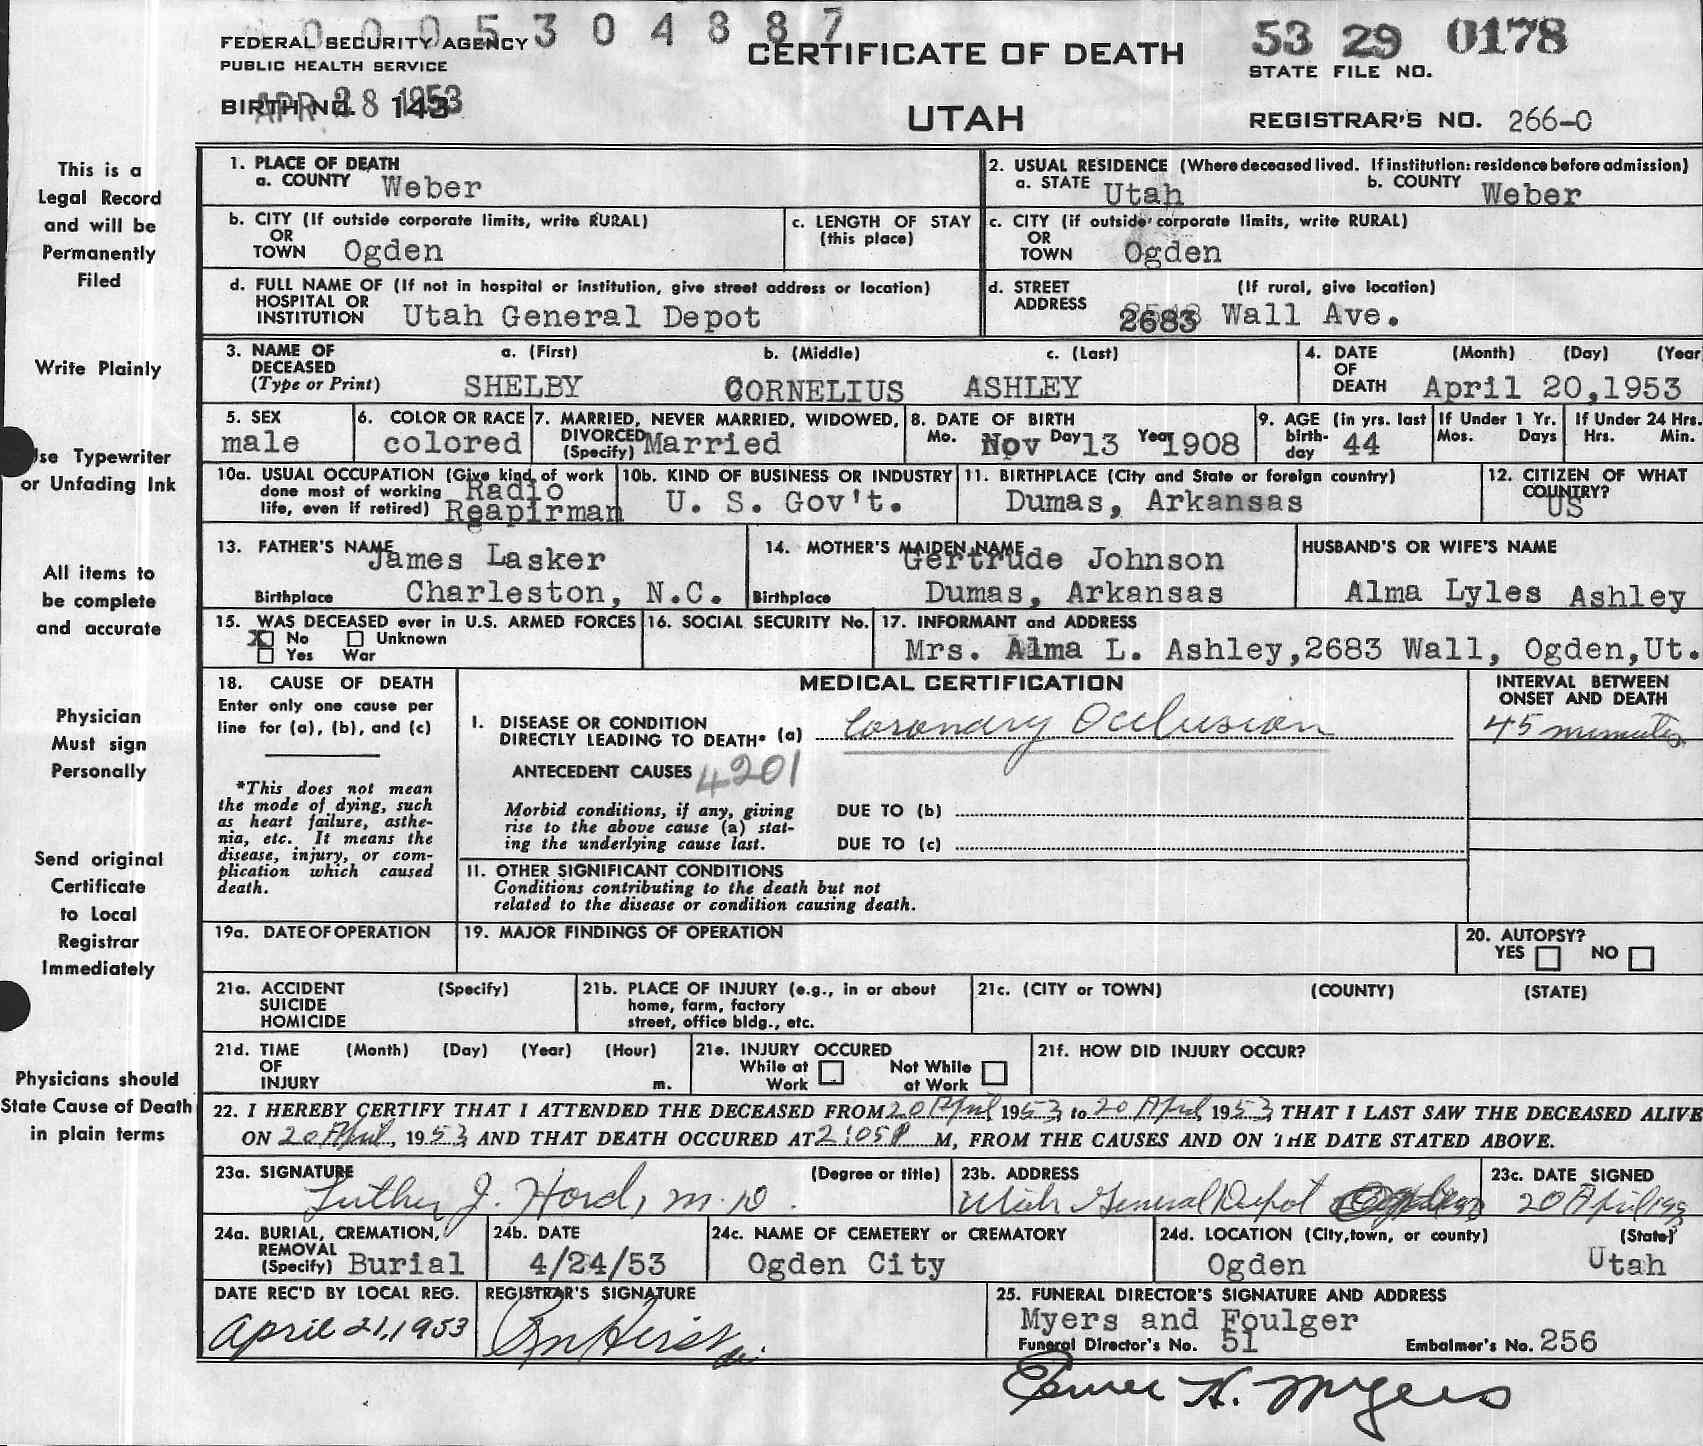 0 0 0 5 3 0 4 8 8 7
FEDERAL SECURITY AGENCY
PUBLIC HEALTH SERVICE
BIRTH NO. 143
APR 28 1953
CERTIFICATE OF DEATH
UTAH
53 29 0178
STATE FILE NO.
REGISTRAR'S NO. 266-0
This is a
Legal Record
and will be
Permanently
Filed
Write Plainly
Use Typewriter
or Unfading Ink
All items to
be complete
and accurate
Physician
Must sign
Personally
Send original
Certificate
to Local
Registrar
Immediately
Physicians should
State Cause of Death
in plain terms
1. PLACE OF DEATH
a. COUNTY Weber
2. USUAL RESIDENCE (Where deceased lived. If institution: residence before admission)
a. STATE Utah b. COUNTY Weber
b. CITY (If outside corporate limits, write RURAL)
OR
TOWN Ogden
c. LENGTH OF STAY
(this place)
c. CITY (if outside corporate limits, write RURAL)
OR
TOWN Ogden
d. FULL NAME OF (If not in hospital or institution, give street address or location)
HOSPITAL OR
INSTITUTION Utah General Depot
d. STREET (If rural, give location)
ADDRESS 2683 Wall Ave.
3. NAME OF a. (First) b. (Middle) c. (Last)
DECEASED
(Type or Print) SHELBY CORNELIUS ASHLEY
4. DATE (Month) (Day) (Year
OF
DEATH April 20,1953
5. SEX
male
6. COLOR OR RACE
colored
7. MARRIED, NEVER MARRIED, WIDOWED,
DIVORCED
(Specify) Married
8. DATE OF BIRTH
Mo. Nov Day 13 Year 1908
9. AGE (in yrs. last
birth-
day 44
If Under 1 Yr.
Mos. Days
If Under 24 Hrs.
Hrs. Min.
10a. USUAL OCCUPATION (Give kind of work
done most of working
life, even if retired) Radio
Reapirman
10b. KIND OF BUSINESS OR INDUSTRY
U. S. Gov't.
11. BIRTHPLACE (City and State or foreign country)
Dumas, Arkansas
12. CITIZEN OF WHAT
COUNTRY?
US
13. FATHER'S NAME
James Lasker
Birthplace Charleston, N.C.
14. MOTHER'S MAIDEN NAME
Gertrude Johnson
Birthplace Dumas, Arkansas
HUSBAND'S OR WIFE'S NAME
Alma Lyles Ashley
15. WAS DECEASED ever in U.S. ARMED FORCES
X No Unknown
Yes War
16. SOCIAL SECURITY No.
17. INFORMANT and ADDRESS
Mrs. Alma L. Ashley,2683 Wall, Ogden,Ut.
18. CAUSE OF DEATH
Enter only one cause per
line for (a), (b), and (c)
*This does not mean
the mode of dying, such
as heart failure, asthe-
nia, etc. It means the
disease, injury, or com-
plication which caused
death.
MEDICAL CERTIFICATION
I. DISEASE OR CONDITION
DIRECTLY LEADING TO DEATH* (a) Coronary Occlusion
ANTECEDENT CAUSES 4201
Morbid conditions, if any, giving
rise to the above cause (a) stat-
ing the underlying cause last.
DUE TO (b)
DUE TO (c)
II. OTHER SIGNIFICANT CONDITIONS
Conditions contributing to the death but not
related to the disease or condition causing death.
INTERVAL BETWEEN
ONSET AND DEATH
45 minutes
19a. DATE OF OPERATION
19. MAJOR FINDINGS OF OPERATION
20. AUTOPSY?
YES NO
21a. ACCIDENT (Specify)
SUICIDE
HOMICIDE
21b. PLACE OF INJURY (e.g., in or about
home, farm, factory
street, office bldg., etc.
21c. (CITY or TOWN) (COUNTY) (STATE)
21d. TIME (Month) (Day) (Year) (Hour)
OF
INJURY m.
21e. INJURY OCCURED
While at Not While
Work at Work
21f. HOW DID INJURY OCCUR?
22. I HEREBY CERTIFY THAT I ATTENDED THE DECEASED FROM 20 April, 1953, to 20 April, 1953, THAT I LAST SAW THE DECEASED ALIVE
ON 20 April, 1953, AND THAT DEATH OCCURED AT 2:05 P M, FROM THE CAUSES AND ON THE DATE STATED ABOVE.
23a. SIGNATURE (Degree or title)
Luther J. Hord, M.D.
23b. ADDRESS
Utah General Depot
23c. DATE SIGNED
20 April 1953
24a. BURIAL, CREMATION,
REMOVAL
(Specify) Burial
24b. DATE
4/24/53
24c. NAME OF CEMETERY or CREMATORY
Ogden City
24d. LOCATION (City, town, or county) (State)
Ogden Utah
DATE REC'D BY LOCAL REG.
April 21, 1953
REGISTRAR'S SIGNATURE
25. FUNERAL DIRECTOR'S SIGNATURE AND ADDRESS
Myers and Foulger
Funeral Director's No. 51 Embalmer's No. 256
H. Myers